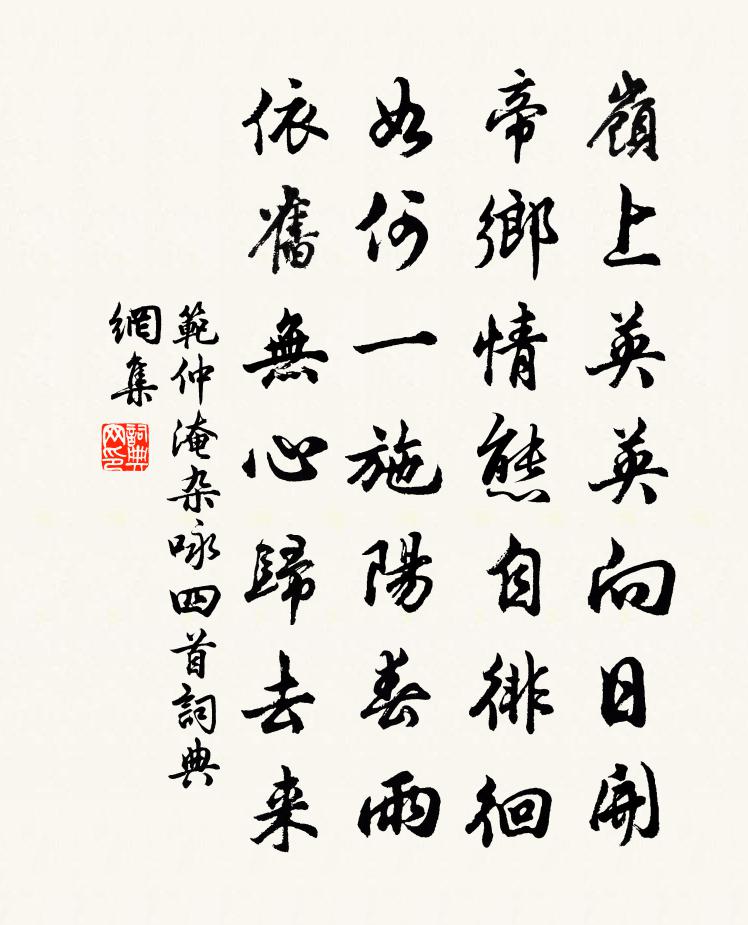 嶺上英英向日開
帝鄉情態自徘徊
如何一施陽春雨
依舊無心歸去来
範仲淹杂咏四首詞典
網集
詞典
网印